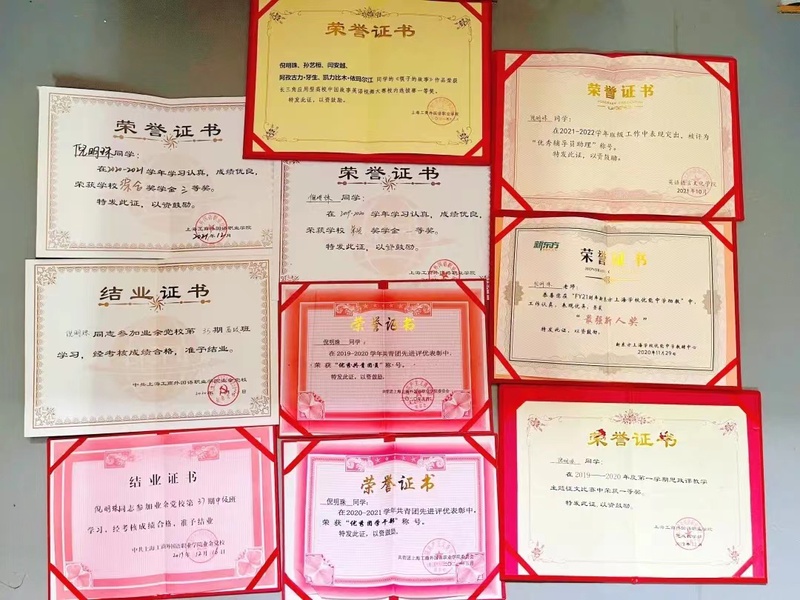 荣誉证书
倪明珠、孙艺桓、闫安越、
阿孜古力·牙生、凯力比木·依玛尔江 同学的《筷子的故事》作品荣获
长三角应用型高校中国故事英语视频大赛校内选拔赛一等奖。
特发此证，以资鼓励。
荣誉证书
倪明珠 同学：
在2021-2022学年班级工作中表现突出，被评为
“优秀辅导员助理”称号。
特发此证，以资鼓励。
英语语言文化学院
2021年10月
荣誉证书
倪明珠同学：
在2020-2021学年学习认真，成绩优良，
荣获学校综合奖学金三等奖。
特发此证，以资鼓励。
上海工商外国语职业学院
荣誉证书
倪明珠 同学：
学年学习认真，成绩优良，
荣获学校 奖学金 等奖。
特发此证，以资鼓励。
上海工商外国语职业学院
新东方
荣誉证书
倪明珠 老师：
工作认真，表现优异，荣获
“最强新人奖”
特发此证，以资鼓励。
2020年11月29日
结业证书
倪明珠同志参加业余党校第35期 班
学习，经考核成绩合格，准予结业。
中共上海工商外国语职业学院业余党校
荣誉证书
倪明珠 同学：
在2019-2020学年共青团先进评优表彰中，
荣 获 “优秀共青团员” 称 号。
特发此证，以资鼓励。
荣誉证书
倪明珠 同学：
在2019——2020年度第一学期思政课教学
主题征文比赛中荣获一等奖。
特发此证，以资鼓励。
上海工商外国语职业学院
结业证书
倪明珠同志参加业余党校第37期中级班
学习，经考核成绩合格，准予结业
中共上海工商外国语职业学院业余党校
荣誉证书
倪明珠 同学：
在2020-2021学年共青团先进评优表彰中，
荣 获 “优秀团学干部” 称 号。
特发此证，以资鼓励。
共青团上海工商外国语职业学院委员会